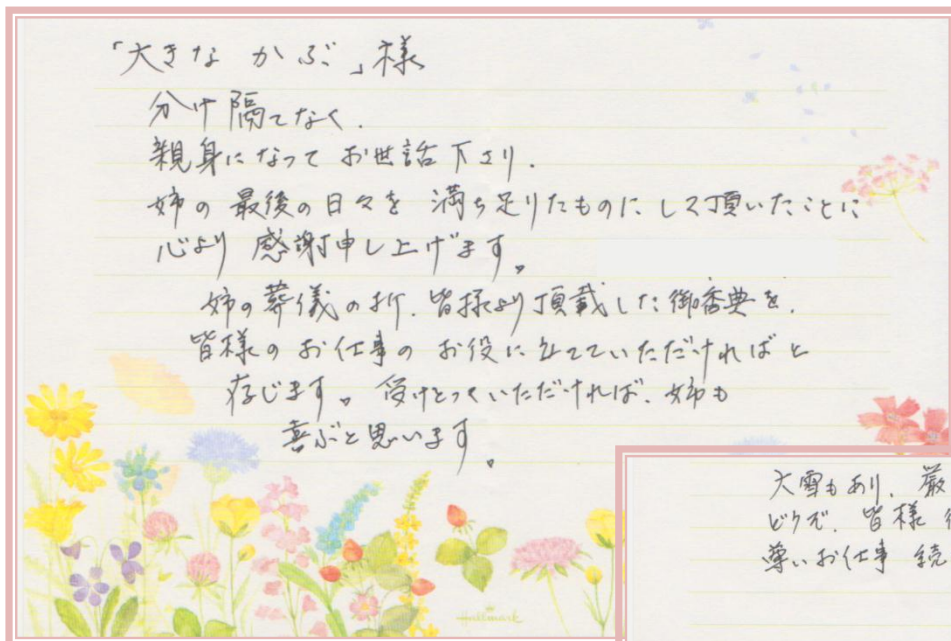 「大きな かぶ」様
分け隔てなく、
親身になって お世話 下さり、
姉の 最後の日々を 満ち足りたものに して頂いたことに
心より 感謝申し上げます。
姉の葬儀の折、皆様より頂戴した御香典を、
皆様の お仕事の お役に立てていただければと
存じます。受けとっていただければ、姉も
喜ぶと思います。
Hallmark
大雪もあり、厳
どうぞ、皆様
尊いお仕事 続